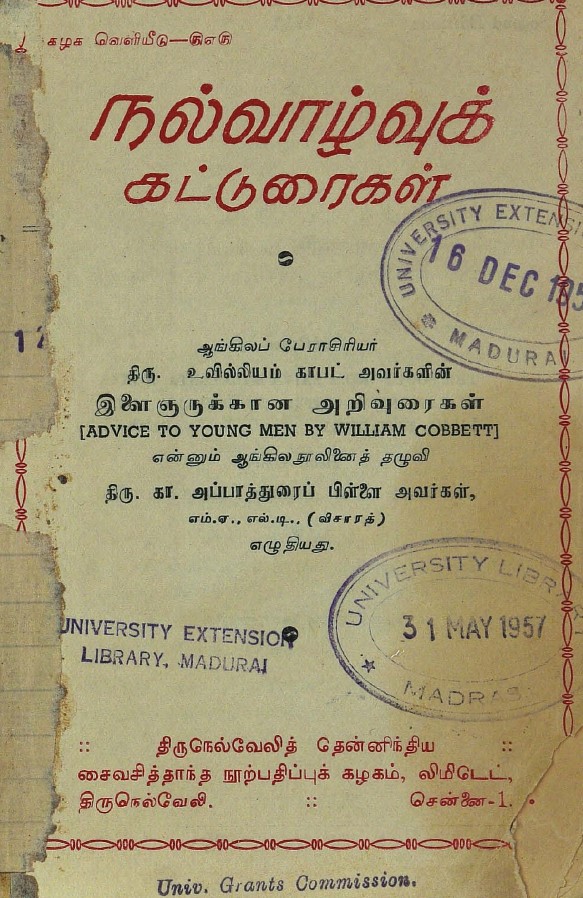 கழக வெளியீடு—
நல்வாழ்வுக்
கட்டுரைகள்
UNIVERSITY EXTENSION
16 DEC 195
MADURAI
1
ஆங்கிலப் பேராசிரியர்
திரு. உவில்லியம் காபட் அவர்களின்
இளைஞருக்கான அறிவுரைகள்
[ADVICE TO YOUNG MEN BY WILLIAM COBBETT]
என்னும் ஆங்கிலநூலினைத் தழுவி
திரு. கா. அப்பாத்துரைப் பிள்ளை அவர்கள்,
எம்.ஏ., எல்.டி., (விசாரத்)
எழுதியது.
UNIVERSITY LIBRA
31 MAY 1957
MADRAS
UNIVERSITY EXTENSION
LIBRARY, MADURAI
:: திருநெல்வேலித் தென்னிந்திய ::
சைவசித்தாந்த நூற்பதிப்புக் கழகம், லிமிடெட்,
திருநெல்வேலி. :: சென்னை-1.
Univ. Grants Commission.